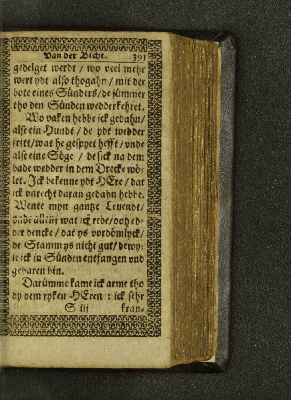 Van der Bicht. 391
gedelget werdt / wo veel mehr
wert ydt also thogahn / mit der
bote eines Sünders / de jümmer
tho den Sünden wedderkehret.
Wo vaken hebbe ick gedahn /
alse ein Hundt / de ydt wedder
fritt / wat he gespyet hefft / vnde
alse eine Söge / de sick na dem
bade wedder in dem Drecke wöl-
let. Ick bekenne ydt HEre / dat
ick vnrecht daran gedahn hebbe.
Wente myn gantze Leuendt /
vnde allent wat ick rede / doh ed-
der dencke / dat ys vordömlyck /
de Stamm ys nicht gut / dewy-
le ick in Sünden entfangen vnd
gebaren bin.
Darümme kame ick arme tho
dy dem ryken HEren : ick sehr
S iij kran-